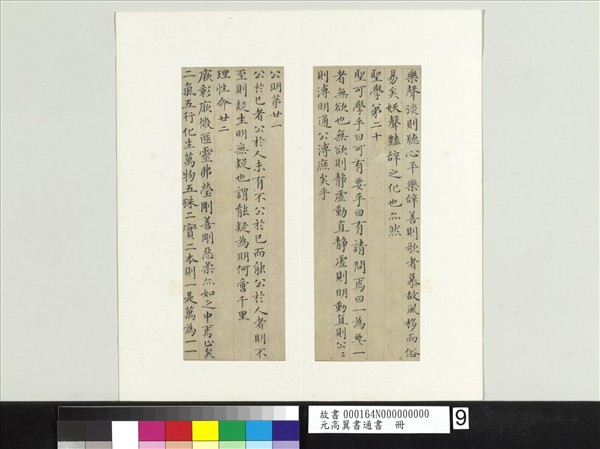 樂聲淡則聽心平樂辭善則歌者慕故風移而俗
易矣妖聲豔辭之化也亦然
聖學第二十
聖可學乎曰可有要乎曰有請問焉曰一為要一
者無欲也無欲則静虛動直静虛則明動直則公〻
則溥明通公溥庶矣乎
公明第廿一
公於己者公於人未有不公於己而能公於人者明不
至則疑生明無疑也謂能疑為明何啻千里
理性命廿二
厥彰厥微匪靈弗瑩剛善剛惡柔亦如之中焉止矣
二氣五行化生萬物五殊二實二本則一是萬為一一
故書 000164N000000000
元高翼書通書 冊
9